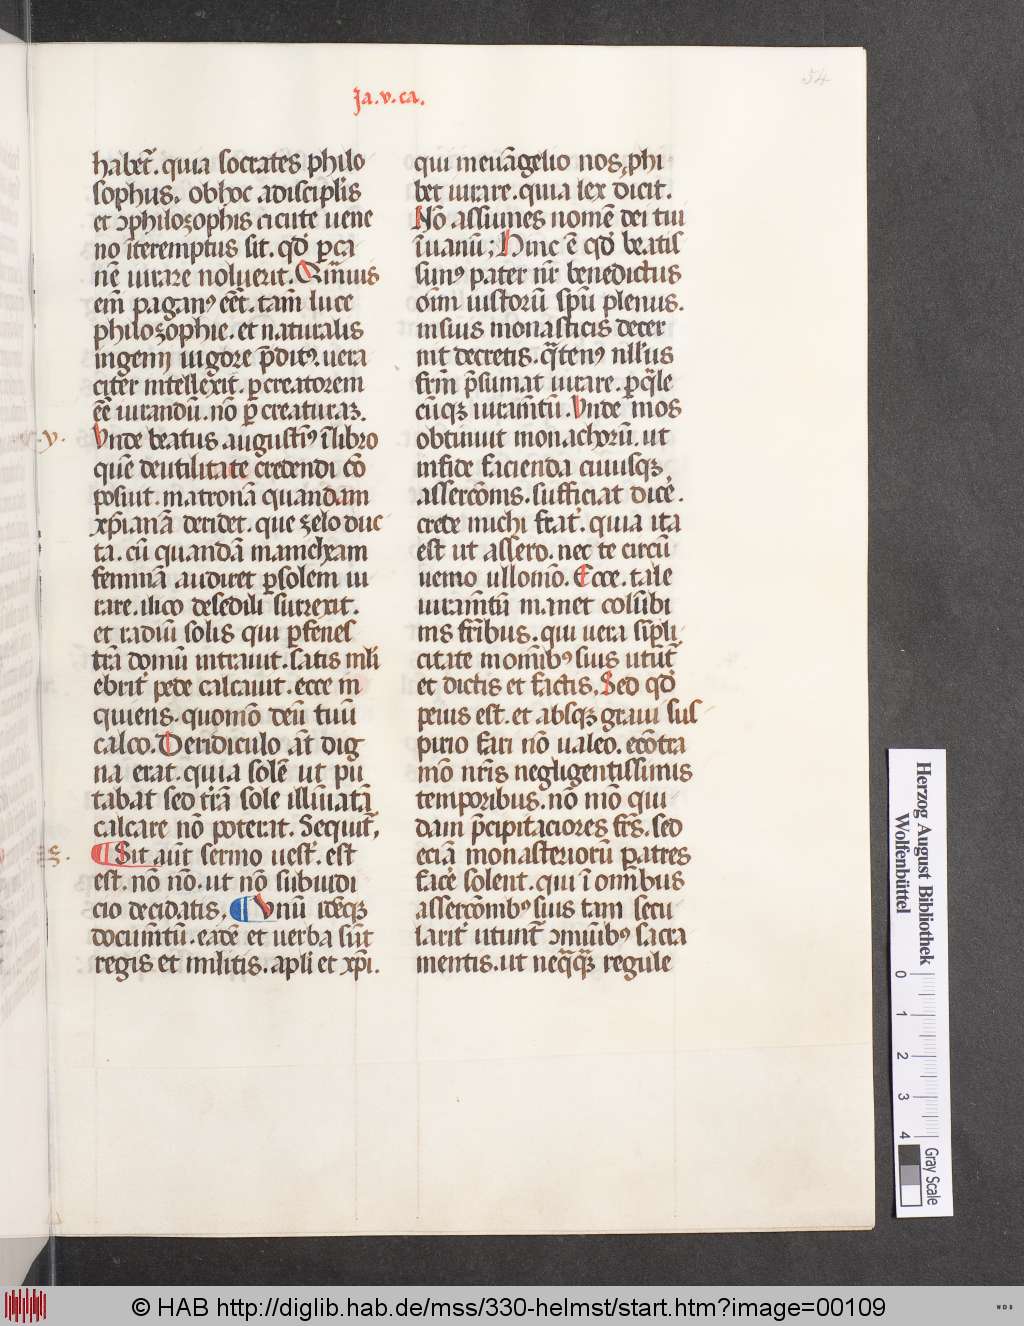 54
Ja.v.ca.
habet̃. quia socrates philo
sophus. ob hoc a discipl̃is
et ɔphilozophis cicute uene
no ĩteremptus sit. qđ ꝑ ca
nẽ iurare noluerit. Qm̃uis
em̃ paganꝰ eẽt. tam̃ luce
philozophie. et naturalis
ingenij uigore p̃ditꝰ. uera
citer intellexit. ꝑ creatorem
eẽ iurandũ. nõ ꝑ creaturaꝫ.
Vnde beatus augustiꝰ ĩ libro
quẽ de utilitate credendi cõ
posuit. matronã quandam
xp̃ianã deridet. que zelo duc
ta. cũ quandã manicheam
feminã audiret ꝑ solem iu
rare. ilico de sedili surrexit.
et radiũ solis qui ꝑ fenes
trã domũ intrauit. satis mli
ebrit̃ pede calcauit. ecce in
quiens. quomõ deũ tuũ
calco. Deridiculo aũt dig
na erat. quia solẽ ut pu
tabat sed t̃rã sole illũiatã
calcare nõ poterat. Sequit̃,
.v.
s.
Sit aũt sermo uest̃. est
est. nõ nõ. ut nõ sub iudi
cio decidatis. Vnũ idẽqꝫ
documẽtũ. eadẽ et uerba sũt
regis et militis. apl̃i et xp̃i.
qui in euãgelio nos ꝓhi
bet iurare. quia lex dicit.
Nõ assumes nomẽ dei tui
ĩ uanũ; Hinc ẽ qđ beatis
simꝰ pater nr̃ benedictus
oim̃ iustorũ sp̃u plenus.
in suis monasticis decer
nit decretis. q̃tenꝰ nll̃us
frm̃ p̃sumat iurare. ꝑ q̃le
cũqꝫ iuramẽtũ. Vnde mos
obtinuit monachorũ. ut
in fide facienda cuiusqꝫ
assercõnis. sufficiat dicẽ.
crede michi frat̃. quia ita
est ut assero. nec te circũ
uenio ullo mõ. Ecce. tale
iuramẽtũ manet colũbi
nis fr̃ibus. qui uera sĩpli
citate in om̃ibꝰ suis utũt̃
et dictis et factis. Sed qđ
peius est. et absqꝫ graui sus
pirio fari nõ ualeo. ecõtra
mõ nr̃is negligentissimis
temporibus. nõ mõ qui
dam p̃cipitaciores fr̃s. sed
eciã monasteriorũ patres
facẽ solent. qui ĩ omnibus
assercõnibꝰ suis tam secu
larit̃ utunt̃ ɔmũibꝰ sacra
mentis. ut neq̃q̃ꝫ regule
Herzog August Bibliothek
Wolfenbüttel
0 1 2 3 4
Gray Scale
© HAB http://diglib.hab.de/mss/330-helmst/start.htm?image=00109